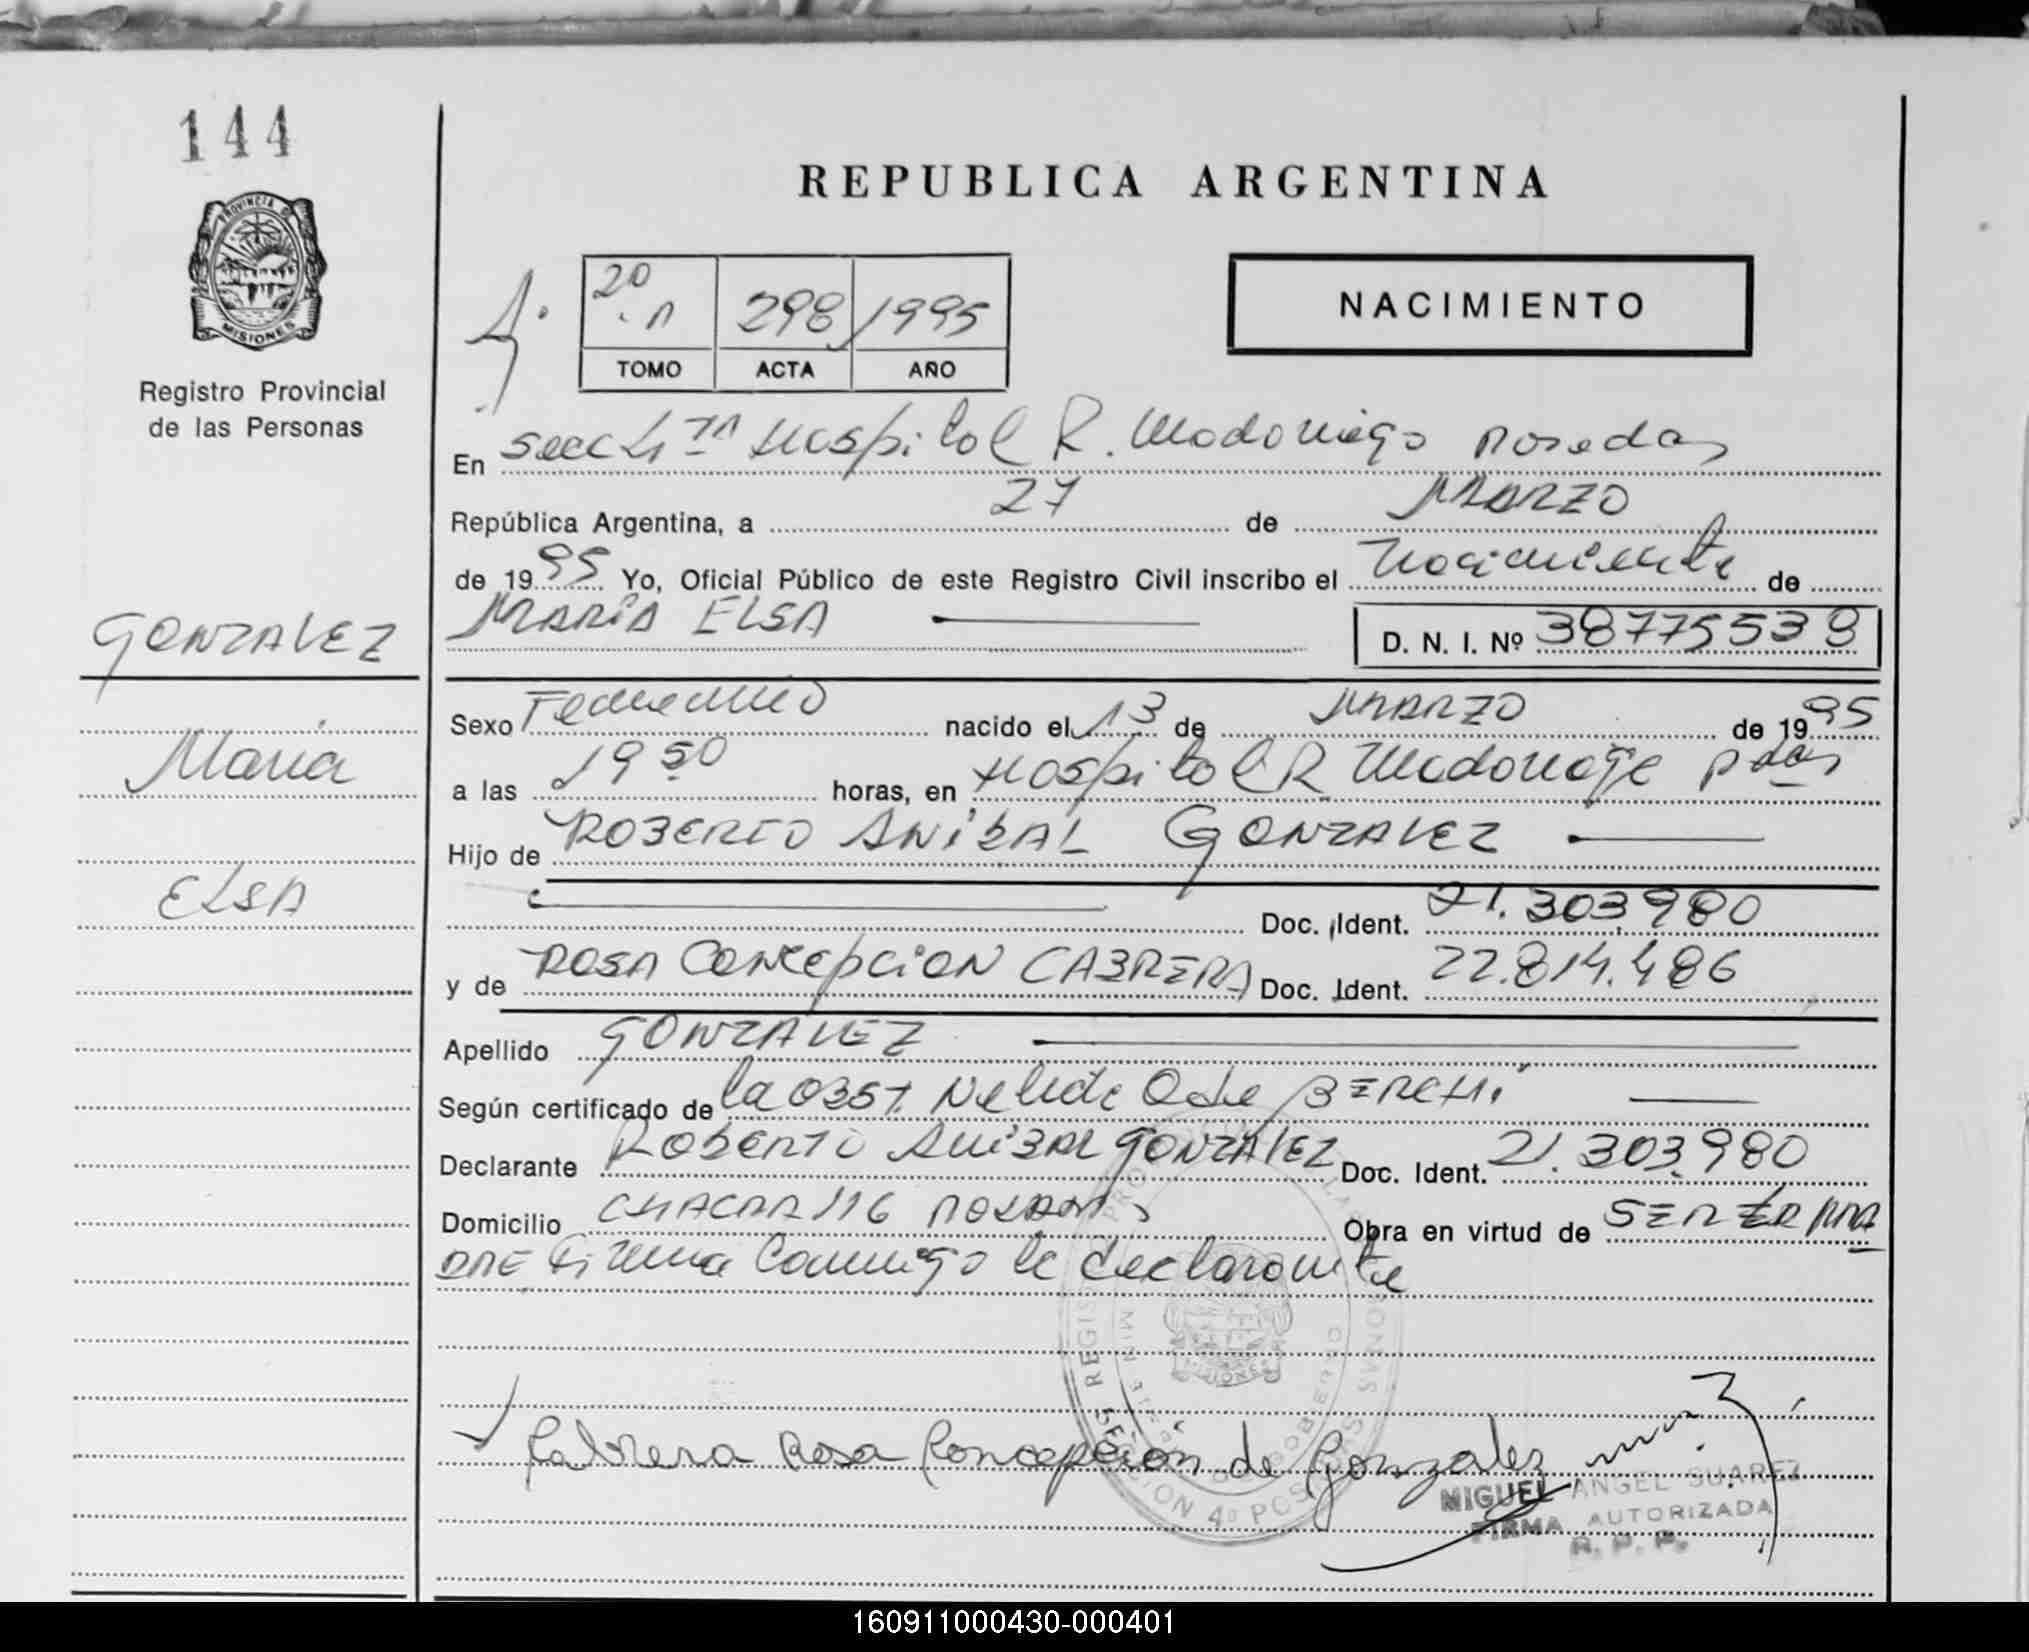 144
PROVINCIA DE
MISIONES
Registro Provincial
de las Personas
GONZALEZ
Maria
ELSA
REPUBLICA ARGENTINA
4º
20
298 1995
TOMO ACTA AÑO
NACIMIENTO
En Secc 4 Hospital R. Madariaga Posadas
República Argentina, a 27 de MARZO
de 1995 Yo, Oficial Público de este Registro Civil inscribo el Nacimiento de
MARIA ELSA D. N. I. Nº 38775538
Sexo Femenino nacido el 13 de MARZO de 1995
a las 19 50 horas, en Hospital R Madariaga Pdas
Hijo de ROBERTO ANIBAL GONZALEZ
Doc. Ident. 21.303.980
y de ROSA CONCEPCION CABRERA Doc. Ident. 22.814.486
Apellido GONZALEZ
Según certificado de la OBST. Nelida
Declarante ROBERTO ANIBAL GONZALEZ Doc. Ident. 21.303.980
Domicilio CHACRA 116 POSADAS Obra en virtud de SER EL PA
DRE Firma Conmigo le declarante
Cabrera Rosa Concepción de Gonzalez
MIGUEL ANGEL SUAREZ
FIRMA AUTORIZADA
R. P. P.
160911000430-000401